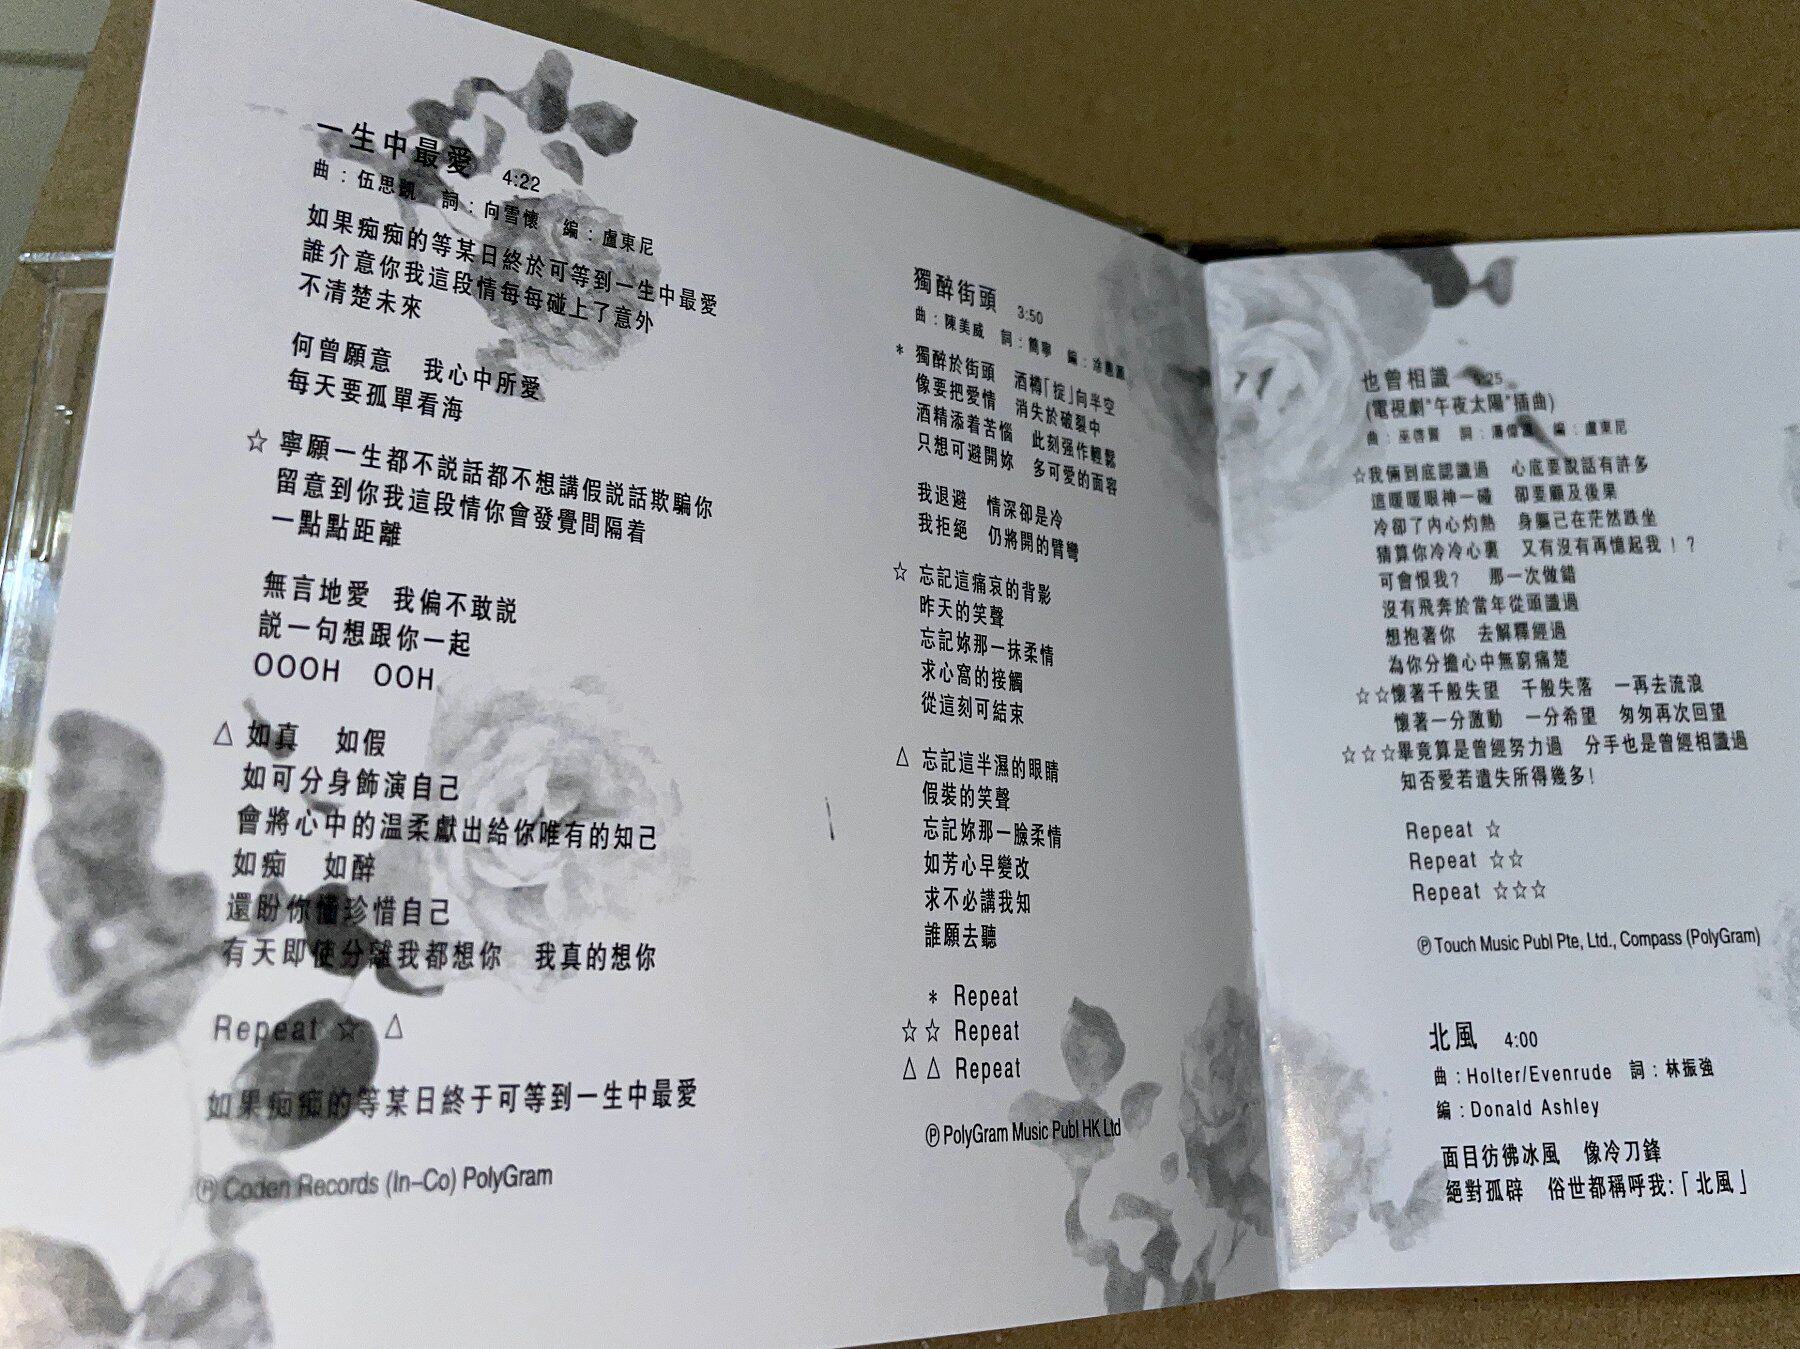 一生中最愛 4:22
曲：伍思凱 詞：向雪懷 編：盧東尼
如果痴痴的等某日終於可等到一生中最愛
誰介意你我這段情每每碰上了意外
不清楚未來
何曾願意 我心中所愛
每天要孤單看海
☆ 寧願一生都不説話都不想講假説話欺騙你
留意到你我這段情你會發覺間隔着
一點點距離
無言地愛 我偏不敢説
説一句想跟你一起
OOOH OOH
△ 如真 如假
如可分身飾演自己
會將心中的溫柔獻出給你唯有的知己
如痴 如醉
還盼你懂珍惜自己
有天即使分離我都想你 我真的想你
Repeat ☆ △
如果痴痴的等某日終于可等到一生中最愛
Ⓟ Coden Records (In-Co) PolyGram
獨醉街頭 3:50
曲：陳美威 詞：簡寧 編：涂惠源
* 獨醉於街頭 酒樽「掟」向半空
像要把愛情 消失於破裂中
酒精添着苦惱 此刻强作輕鬆
只想可避開妳 多可愛的面容
我退避 情深卻是冷
我拒絕 仍將開的臂彎
☆ 忘記這痛哀的背影
昨天的笑聲
忘記妳那一抹柔情
求心窩的接觸
從這刻可結束
△ 忘記這半濕的眼睛
假裝的笑聲
忘記妳那一臉柔情
如芳心早變改
求不必講我知
誰願去聽
* Repeat
☆☆ Repeat
△△ Repeat
Ⓟ PolyGram Music Publ HK Ltd
也曾相識 :25
(電視劇"午夜太陽"插曲)
曲：巫啓賢 詞：潘偉源 編：盧東尼
☆我倆到底認識過 心底要説話有許多
這暖暖眼神一碰 卻要顧及後果
冷卻了內心灼熱 身軀已在茫然跌坐
猜算你冷冷心裏 又有沒有再憶起我！？
可會恨我？ 那一次做錯
沒有飛奔於當年從頭識過
想抱著你 去解釋經過
為你分擔心中無窮痛楚
☆☆懷著千般失望 千般失落 一再去流浪
懷著一分激動 一分希望 匆匆再次回望
☆☆☆畢竟算是曾經努力過 分手也是曾經相識過
知否愛若遺失所得幾多！
Repeat ☆
Repeat ☆☆
Repeat ☆☆☆
Ⓟ Touch Music Publ Pte, Ltd., Compass (PolyGram)
北風 4:00
曲：Holter/Evenrude 詞：林振強
編：Donald Ashley
面目彷彿冰風 像冷刀鋒
絕對孤辟 俗世都稱呼我：「北風」